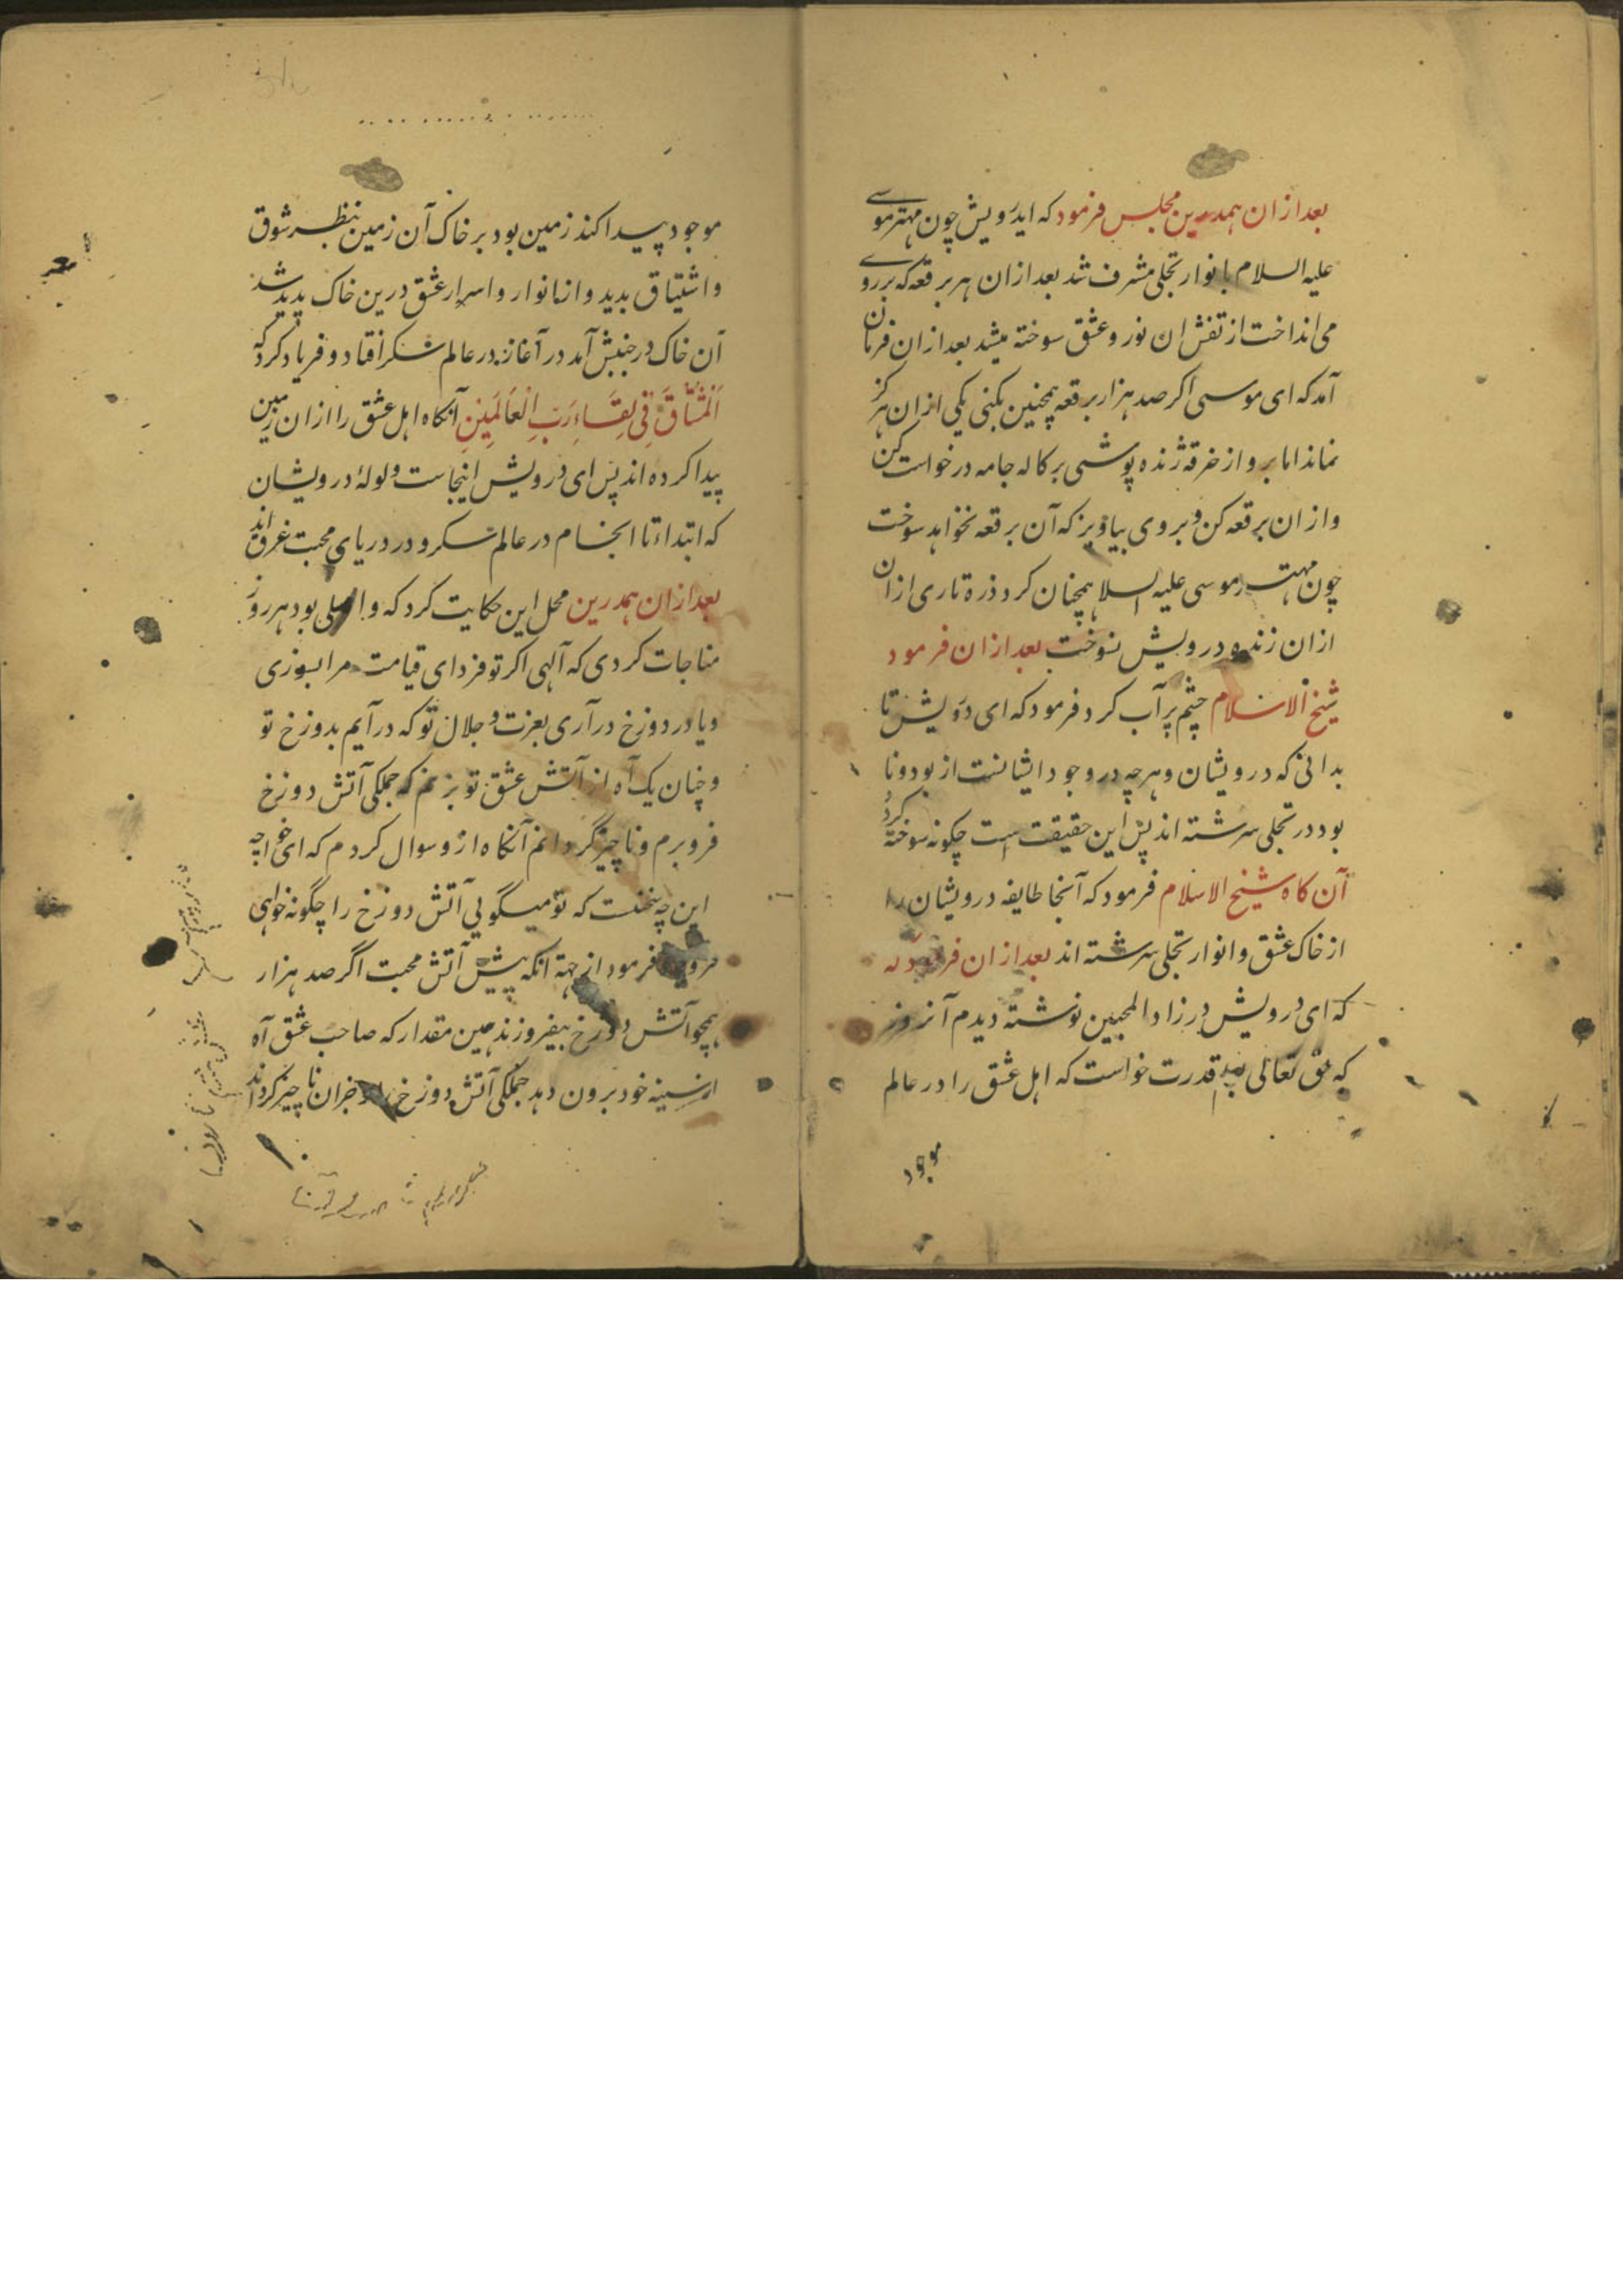 بعد ازان همدرین مجلس فرمود که ایدرویش چون مهتر موسے
علیه السلام بانوار تجلی مشرف شد بعد ازان هر برقعه که برروے
می انداخت از تفش ان نور و عشق سوخته میشد بعد ازان فرمان
آمد که ای موسی اکر صد هزار برقعه همچنین بکنی یکی ازان هرکز
نماند اما برو از خرقه ژنده پوشی پرکاله جامه درخواست کن
و ازان برقعه کن و بروی بیاویز که آن برقعه نخواهد سوخت
چون مهتر موسی علیه السلام همچنان کرد ذره تاری ازان
ازان زنده درویش نسوخت بعد ازان فرمود
شیخ الاسلام چشم پرآب کرد فرمود که ای درویش تا
بدانی که درویشان و هرچه در وجود ایشانست از بود و نا
بود در تجلی سرشته اند پس این حقیقت است چکونه سوخته کردد
آن کاه شیخ الاسلام فرمود که آنجا طایفه درویشان را
از خاک عشق و انوار تجلی سرشته اند بعد ازان فرمود که
که ای درویش در زاد المحبین نوشته دیدم آنروز
که حق تعالی قدرت خواست که اهل عشق را در عالم
موجود
موجود پیدا کند زمین بود بر خاک آن زمین بنظر شوق
و اشتیاق بدید و ازانانوار و اسرار عشق درین خاک پدید شد
آن خاک درجنبش آمد در آغاز بدر عالم سکر افتاد و فریاد کرد که
اَلْمُشْتَاقُ فِي لِقَاءِ رَبِّ الْعَالَمِینِ آنکاه اهل عشق را ازان زمین
پیدا کرده اند پس ای درویش اینجاست ولولهٔ درویشان
که ابتداء تا انجام در عالم سکر و در دریای محبت غرق اند
بعد ازان همدرین محل این حکایت کرد که واصلی بود هر روز
مناجات کردی که آلهی اکر تو فردای قیامت مرا بسوزی
و یا در دوزخ درآری بعزت و جلال تو که درآیم بدوزخ تو
و چنان یک آه از آتش عشق تو بزنم که جملکی آتش دوزخ
فرو برم و ناچیز گردانم آنکاه ازو سوال کردم که ای خواجه
این چه سخنست که تو میگویی آتش دوزخ را چگونه خواهی
فرو برد فرمود از جهة انکه پیش آتش محبت اگر صد هزار
همچو آتش دوزخ بیفروزند همین مقدار که صاحب عشق آه
از سینه خود برون دهد جملکی آتش دوزخ را و جزان ناچیز کرداند